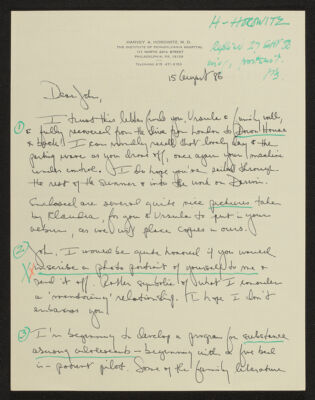 H-HOROWITZ
HARVEY A. HOROWITZ, M. D.
THE INSTITUTE OF PENNSYLVANIA HOSPITAL
111 NORTH 49TH STREET
PHILADELPHIA, PA. 19139
TELEPHONE 215 471-2153
15 August 86
Dear John,
① I trust this letter finds you, Ursula & family well,
& fully recovered from the drive from London to Down House
& back! I can vividly recall that lovely day & the
parting wave as you drove off, once again your machine
under control. I do hope you've sailed through
the rest of the summer & into the work on Darwin.
Enclosed are several quite nice pictures taken
by Klaudia, for you & Ursula to put in your
album, as we'll place copies in ours.
② John, I would be quite honored if you would
inscribe a photo portrait of yourself to me &
send it off. Rather symbolic of what I consider
a 'mentoring' relationship. I hope I don't
embarrass you!
③ I'm beginning to develop a program for substance
abusing adolescents - beginning with a five bed
in-patient pilot. Some of the family literature